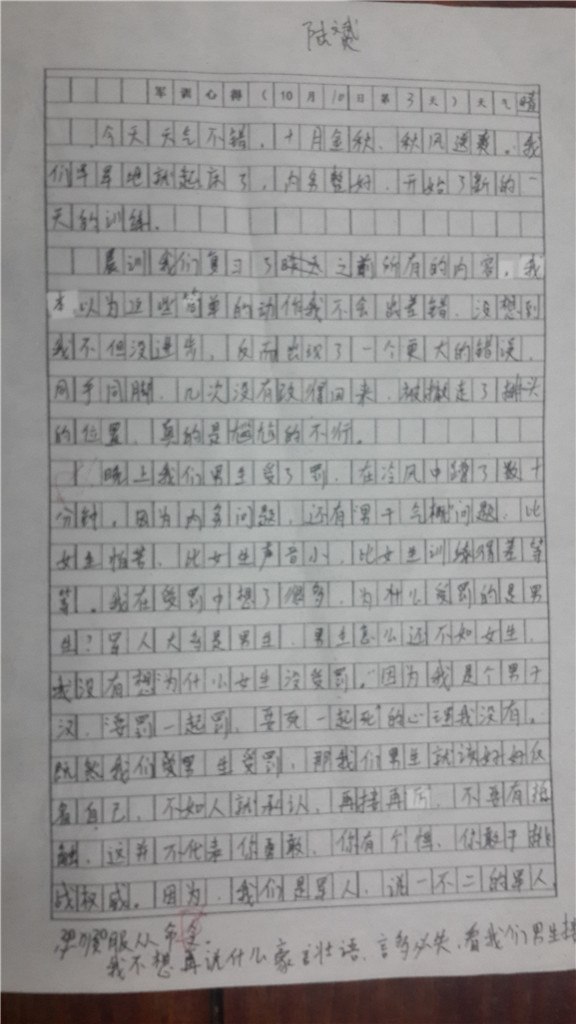 军训心得(10月10日第3天)天气晴
今天天气不错,十月金秋,秋风送爽。我
们早早地就起床了,内务整好,开始了新的一
天的训练。
晨训我们复习了之前所有的内容,我
本以为这些简单的动作我不会出差错,没想到
我不但没进步,反而出现了一个更大的错误,
同手同脚,几次没有改得回来,被撤走了排头
的位置,真的是尴尬的不行。
晚上我们男生受了罚,在冷风中蹲了数十
分钟,因为内务问题,还有男子气概问题,比
女生怕苦,比女生声音小,比女生训练得差等
等。我在受罚中想了很多,为什么受罚的是男
生?军人大多是男生,男生怎么还不如女生,
我没有想为什么女生没受罚。因为我是个男子
汉,要罚一起罚,要死一起死的心理我没有。
既然我们受男生受罚,那我们男生就该好好反
省自己,不如人就承认,再接再厉,不要有抵
触,这并不代表你勇敢,你有个性,你敢于挑
战权威。因为,我们是军人,说一不二的军人
必须服从命令。
我不想再说什么豪言壮语,言多必失,看我们男生